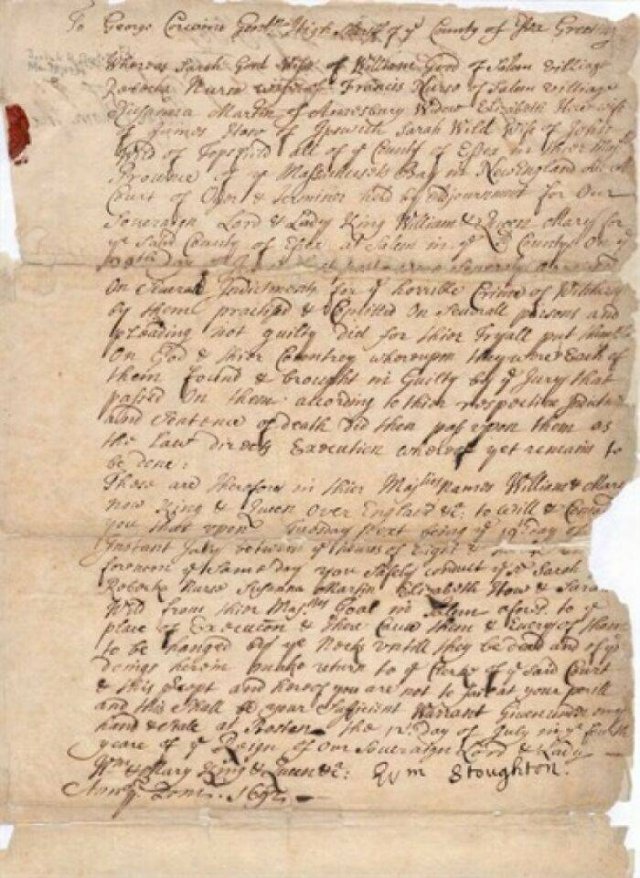 To George Corwine Gentln High Sheriff of ye County of Essex Greeting
Whereas Sarah Good Wife of William Good of Salem Village
Rebecka Nurse wife of Francis Nurse of Salem Village
Susanna Martin of Amesbury Widow Elizabeth How wife
of James How of Ipswich Sarah Wild Wife of John
Wild of Topsfield all of ye County of Essex in thier Majts
Province of ye Massachusetts Bay in New England
Court of Oyer & Terminer held by adjournment for Our
Soveraign Lord & Lady King William & Queen Mary for
ye said County of Essex at Salem in ye sd County On ye
On severall Indictments for ye horrible Crime of Witchcraft
by them practised & Comitted On severall persons and
pleading not guilty did for thier Tryall put themselves
On God & thier Countrey whereupon they were Each of
them found & brought in Guilty by ye Jury that
passed On them according to thier respective Indictmts
and Sentence of death did then pass upon them as
the Law directs Execution whereof yet remains to
be done:
These are therefore in thier Majties names William & Mary
now King & Queen over England &c: to will & Comand
you that upon Tuesday next being ye 19th day of
Instant July between ye houres of Eight &
forenoon & same day you safely conduct ye sd Sarah
Rebecka Nurse Susanna Martin Elizabeth How & Sarah
Wild from thier Majties Goal in Salem aforesd to ye
place of Execution & there Cause them & Every of them
to be hanged by ye Neck untill they be dead and of yor
doings herein make return to ye Clerke of ye said Court
& this precept and hereof you are not to fail at your perill
and this Shall be your sufficient Warrant Given under my
hand & seale at Boston the 12th day of July in ye fourth
yeare of ye Reign of Our Soveraign Lord & Lady
Wm & Mary King & Queen &c: Wm Stoughton.
Annoq Dom. 1692